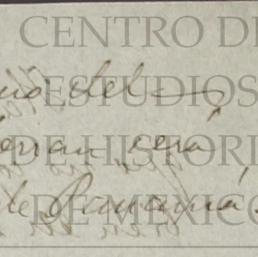 CENTRO DE
ESTUDIOS
DE HISTORIA
DE MEXICO
del
será
de Panamá